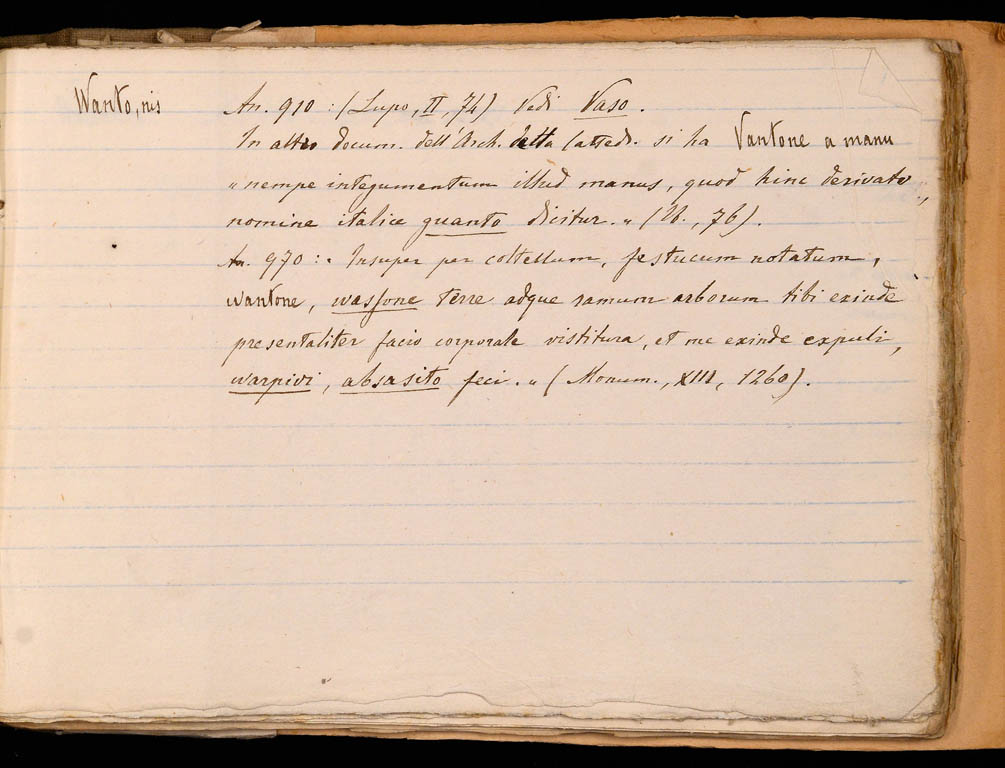 Wanto, nis An. 910 : (Lupo, II, 74) Vedi Vaso.
In altro docum. dell'Arch. della Catted. si ha Vantone a manu
" nempe integumentum illud manus, quod hinc derivato
nomine italice guanto dicitur. " (Ib., 76).
An. 970 : " Insuper per coltellum, festucum notatum,
wantone, wassone terre adque ramum arborum tibi exinde
presentaliter facio corporale vistitura, et me exinde expuli,
warpivi, absasito feci. " (Monum., XIII, 1260).